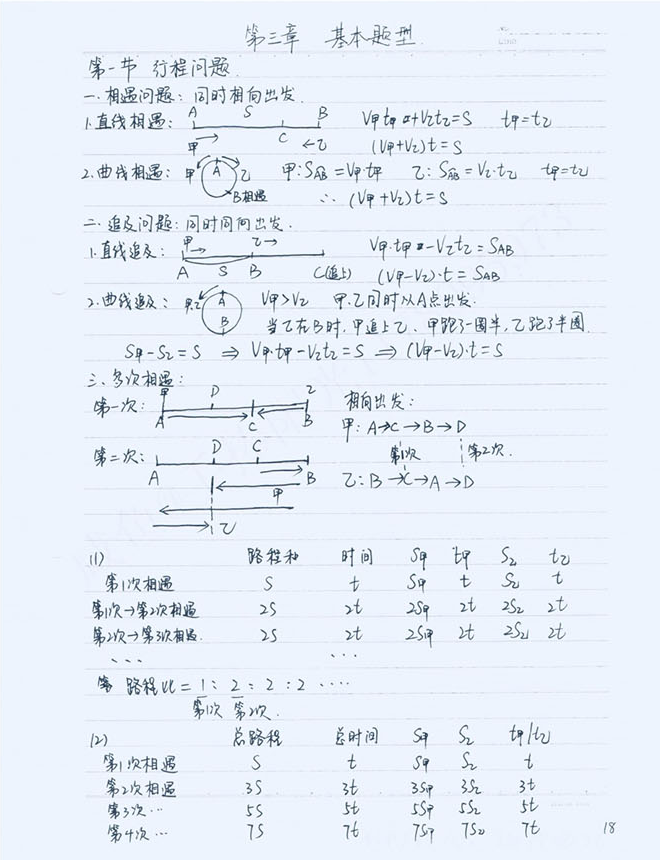 第三章 基本题型
第一节 行程问题
一.相遇问题: 同时相向出发.
A S B
1.直线相遇: V甲t甲+V乙t乙=S t甲=t乙
甲 C 乙 (V甲+V乙)t=S
2.曲线相遇: 甲 A 乙 甲:SAB=V甲·t甲 乙:SAB=V乙·t乙 t甲=t乙
B相遇 ∴ (V甲+V乙)t=S
二.追及问题: 同时同向出发.
甲 乙
1.直线追及: V甲·t甲-V乙t乙=SAB
A S B C(追上) (V甲-V乙)·t=SAB
2.曲线追及: 甲.乙 A B V甲>V乙 甲.乙同时从A点出发.
当乙在B时,甲追上乙,甲跑了一圈半,乙跑了半圈.
S甲-S乙=S ⇒ V甲·t甲-V乙t乙=S ⇒ (V甲-V乙)·t=S
三.多次相遇:
甲 D 乙 相向出发:
第一次: A C B 甲: A→C→B→D
第二次: D C 第1次 第2次.
A B 乙: B→C→A→D
甲
乙
(1) 路程和 时间 S甲 t甲 S乙 t乙
第1次相遇 S t S甲 t S乙 t
第1次→第2次相遇 2S 2t 2S甲 2t 2S乙 2t
第2次→第3次相遇. 2S 2t 2S甲 2t 2S乙 2t
... ...
路程比=1:2:2:2 ....
第1次 第2次.
(2) 总路程 总时间 S甲 S乙 t甲/t乙
第1次相遇 S t S甲 S乙 t
第2次相遇 3S 3t 3S甲 3S乙 3t
第3次... 5S 5t 5S甲 5S乙 5t
第4次... 7S 7t 7S甲 7S乙 7t 18